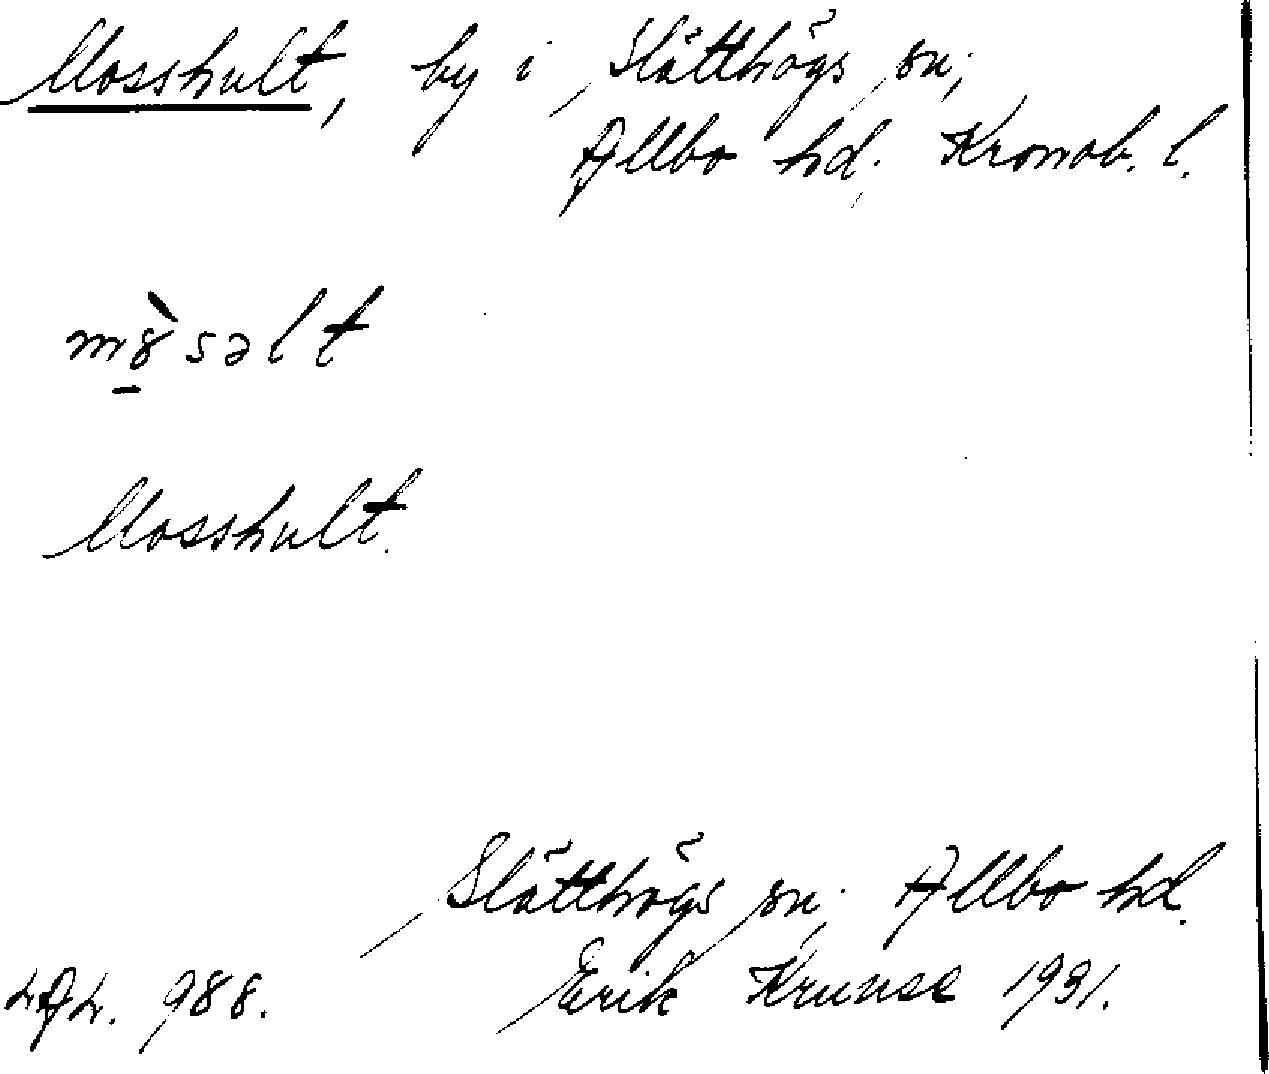 Mosshult, by i Slätthögs sn;
Allbo hd; Kronob. l.
mɤ̀səlt
Mosshult.
Slätthögs sn; Allbo hd.
988. Erik Krunse 1931.